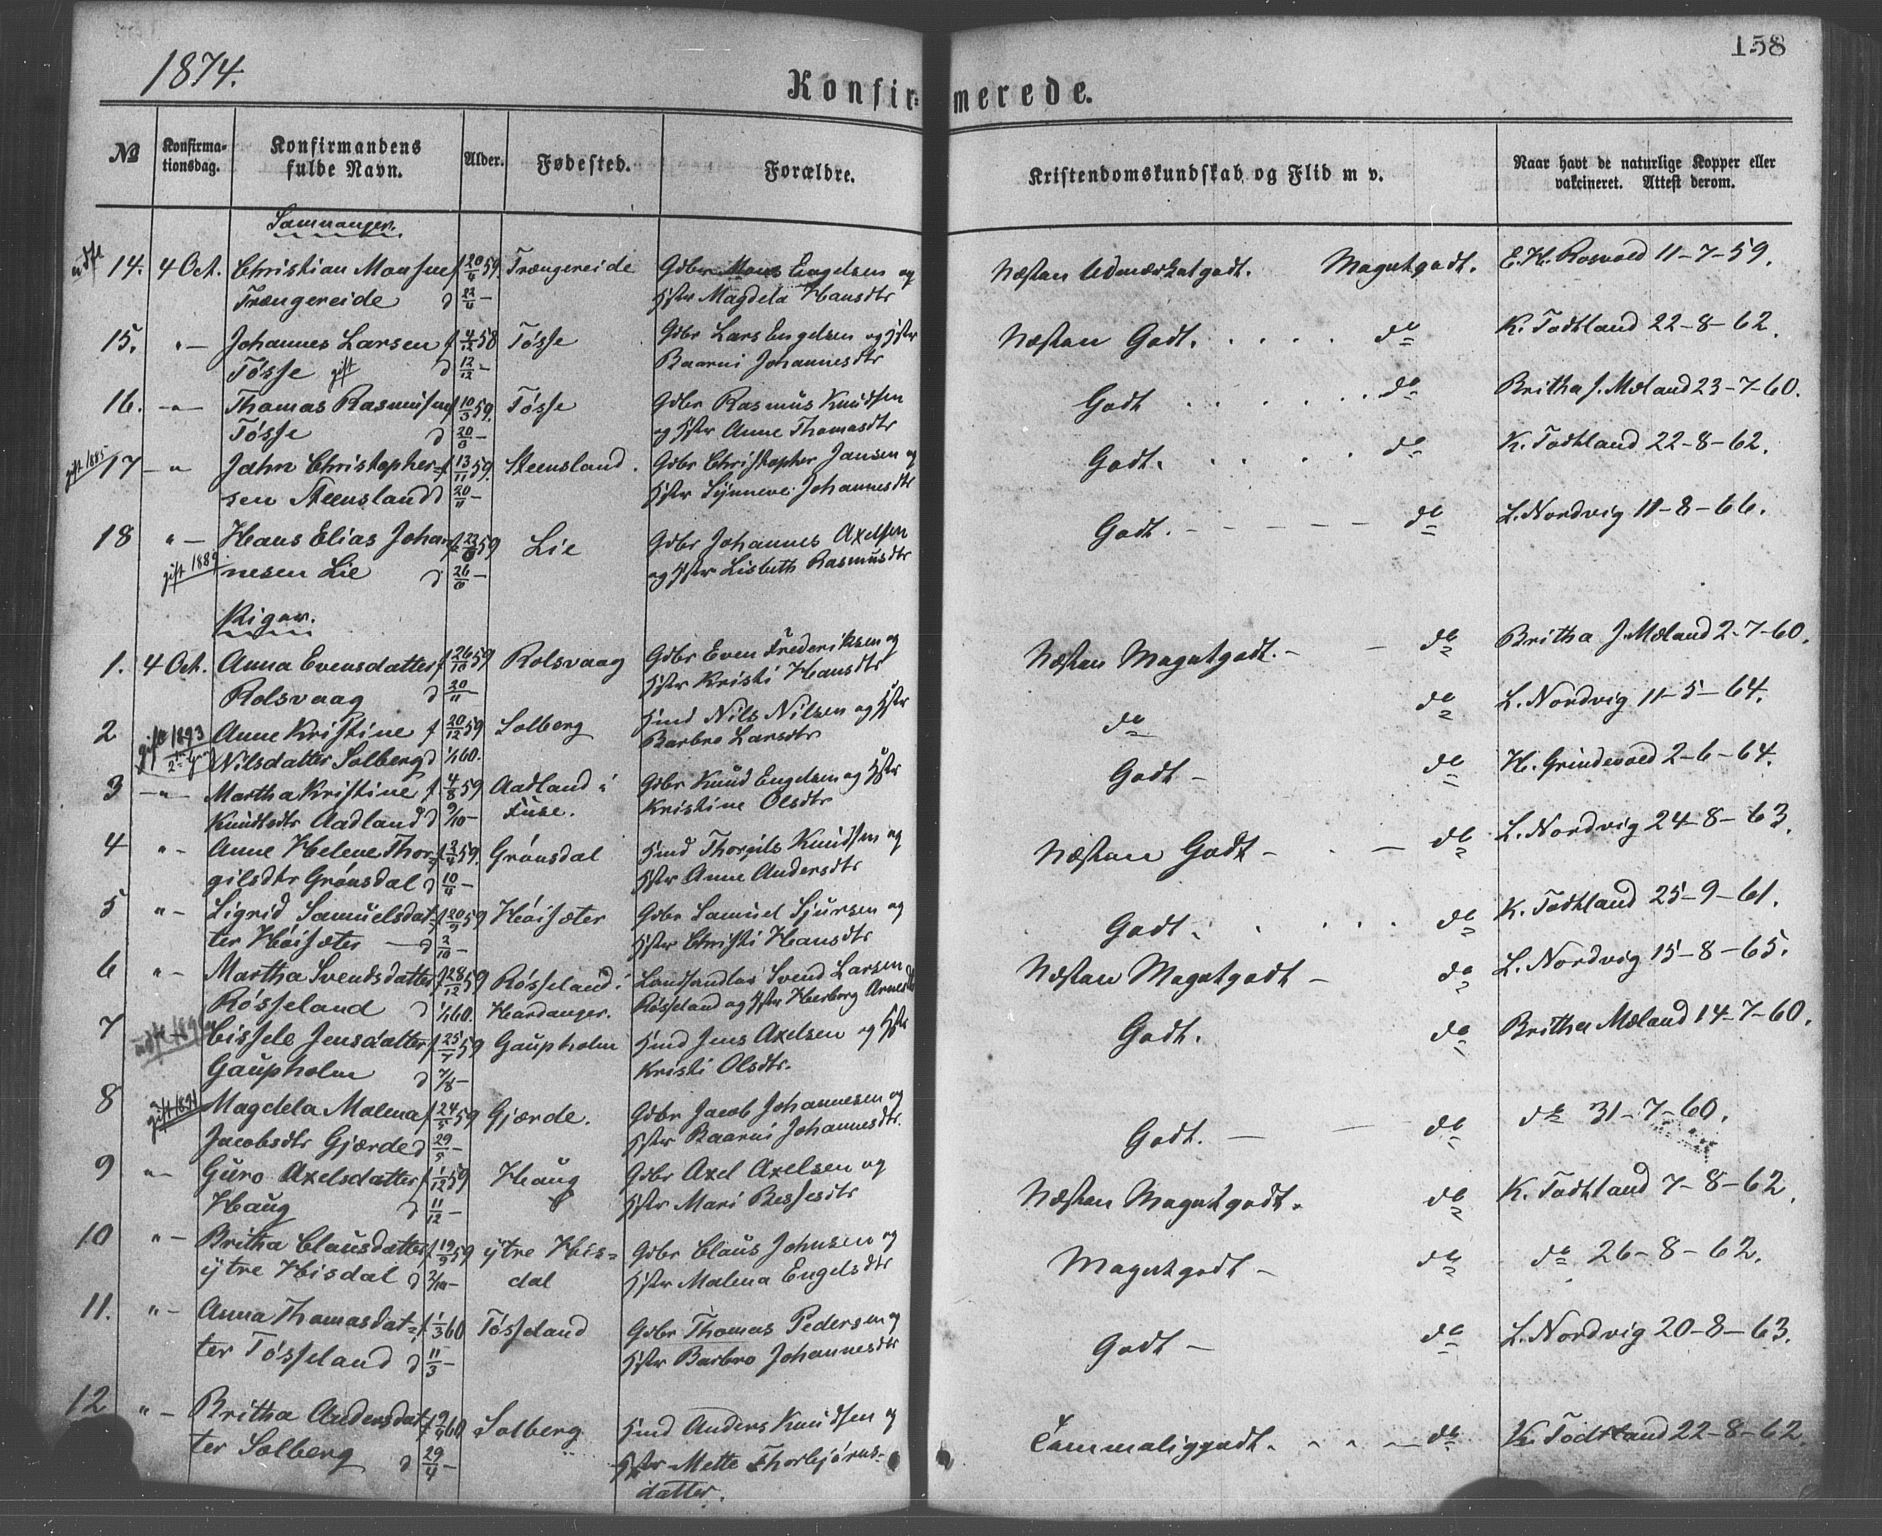 1874.
158
Konfirmerede.
№
Konfirma-
tionsdag.
Konfirmandens
fulde Navn.
Alder.
Fødested.
Forældre.
Kristendomskundskab og Flid m v.
Naar havt de naturlige Kopper eller
vakcineret. Attest derom.
Samnanger.
14. 4 Oct. Christian Monsen f 20/4 59. Trængereide Gdbr Mons Engelsen og Næsten Udmærketgodt. Megetgodt. E.H. Rosvold 11-7-59.
udfl Trængereide d 22/4 – Hstr Magdela Hansdtr
15. " – Johannes Larsen f 4/12 58 Tøsse Gdbr Lars Engelsen og Hstr Næsten Godt. . . . . do K. Todtland 22-8-62.
Tøsse gift d 12/12 – Baarni Johannesdtr
16. – " – Thomas Rasmusen f 10/3 59. Tøsse Gdbr Rasmus Knudsen Godt . . . . . do Britha J. Mæland 23-7-60.
Tøsse d 20/3 – og Hstr Anne Thomasdtr
gift 1885 17 – " Jahn Christopher= f 13/11 59. Steensland. Gdbr Christopher Jansen og Godt. . . . . do K. Todtland 22-8-62.
sen Steensland d 20/11 – Hstr Synneve Johannesdtr
18 " – Hans Elias Johan f 22 59 Lie Gdbr Johannes Axelsen Godt. – – – – – do L. Nordvig 11-8-66.
gift 1889 nesen Lie d 26 – og Hstr Lisbeth Rasmusdtr
Piger.
1. 4 Oct. Anna Evensdatter f 26/10 59 Rolsvaag Gdbr Even Frederiksen og Næsten Megetgodt. – – do Britha J. Mæland 2-7-60.
Rolsvaag d 20/11 Hstr Kristi Hansdtr
2 gift 1893 Anne Kristine f 20/12 59 Solberg Hmd Nils Nilsen og Hstr do do L. Nordvig 11-5-64.
Nilsdatter Solberg d 1/1 60. Barbro Larsdtr
3 – " – Martha Kristine f 4/8 59 Aadland i Gdbr Knud Engelsen og Hstr Godt – do H. Grindevold 2-6-64.
Knudsdtr Aadland d 9/10 – Fuse. Kristine Olsdtr
4 " – Anne Helene Thor= f 2/4 59. Grønsdal Hmd Thorgils Knudsen og Næsten Godt – . – do L. Nordvig 24-8-63.
gilsdtr Grønsdal d 10/4 – Hstr Anne Andersdtr
5 " – Sigrid Samuelsdat f 20/9 59 Høisæter Gdbr Samuel Sjursen og Godt. . . . . do K. Todtland 25-9-61.
ter Høisæter – d 2/10 – Hstr Christi Hansdtr
6 " – Martha Svendsdatter f 28/12 59 Røsseland i Svend Larsen Næsten Megetgodt – do L. Nordvig 15-8-65.
Røsseland d 1/1 60. Hardanger. Røsseland og Hstr Herborg Arnesdtr
7 Cissele Jensdatter f 25/7 59 Gaupholm Hmd Jens Axelsen og Hstr Godt. do Britha Mæland 14-7-60.
Gaupholm d 7/8 – Kristi Olsdtr.
8 gift 1891 Magdela Malena f 24/5 59 Gjærde. Gdbr Jacob Johannesen og Godt. – – do do 31-7-60.
Jacobsdtr Gjærde d 29/5 – Hstr Baarni Johannesdtr.
9 " – Guro Axelsdatter f 1/12 59 Haug Gdbr Axel Axelsen og Næsten Megetgodt. do K. Todtland 7-8-62.
Haug d 11/12 – Hstr Mari Bessesdtr
10 " – Britha Clausdatter f 19/9 59 ytre His= Gdbr Claus Johnsen og Megetgodt – do do 26-8-62.
ytre Hisdal d 2/10 – dal Hstr Malena Engelsdtr
11. " – Anna Thomasdat= f 1/3 60 Tøsseland Gdbr Thomas Pedersen og Godt – do L. Nordvig 20-8-63.
ter Tøsseland d 11/3 – Hstr Barbro Johannesdtr
12 " – Britha Andersdat f 19/4 60 Solberg Hmd Anders Knudsen og Temmeliggodt. – – – do K. Todtland 22-8-62.
ter Solberg d 29/4 – Hstr Mette Thorbjørns-
datter.